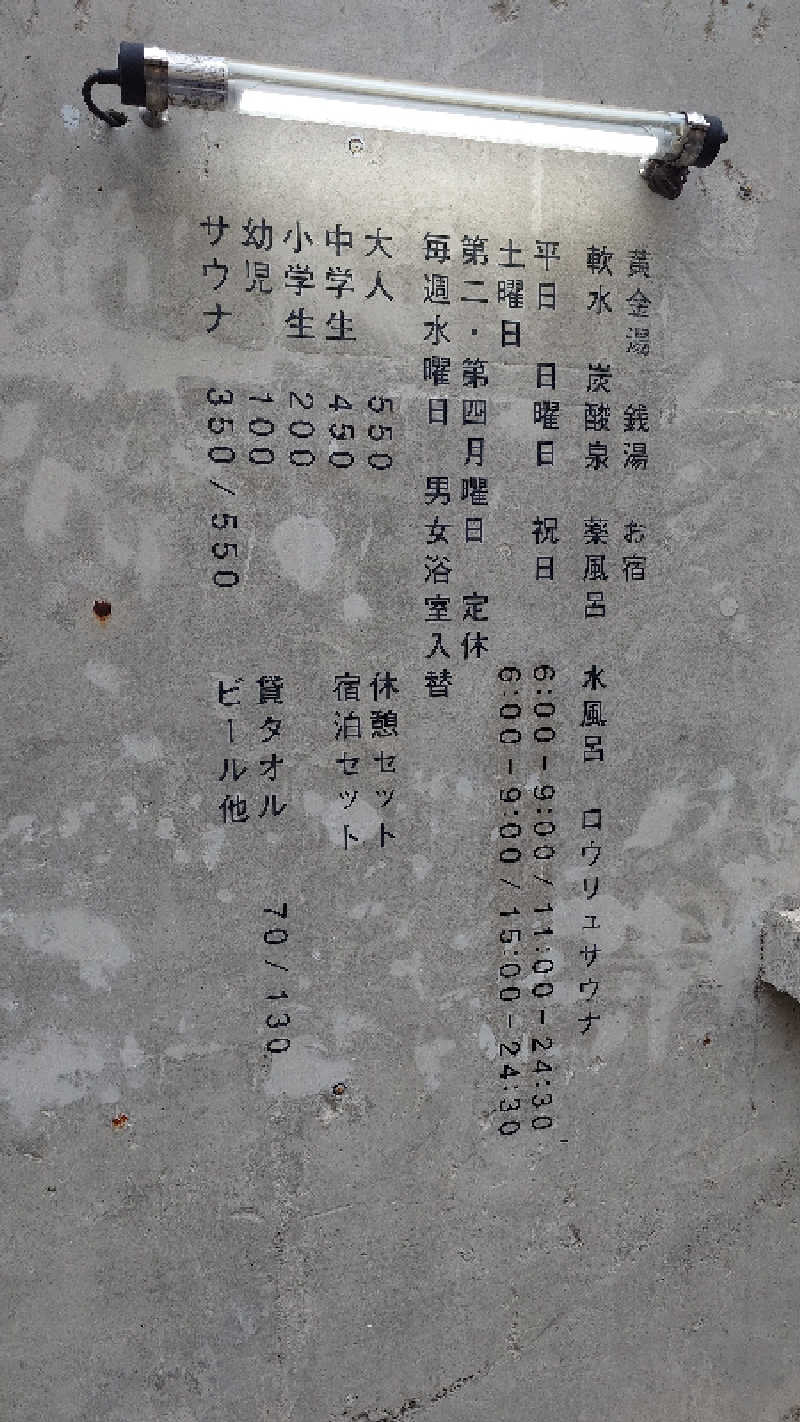 黄金湯　銭湯　お宿
軟水　炭酸泉　薬風呂　水風呂　ロウリュサウナ
平日　日曜日　祝日　6:00-9:00/11:00-24:30
土曜日　6:00-9:00/15:00-24:30
第二・第四月曜日　定休
毎週水曜日　男女浴室入替
大人　550
中学生　450
小学生　200
幼児　100
サウナ　350/550
休憩セット
宿泊セット
貸タオル　70/130
ビール他